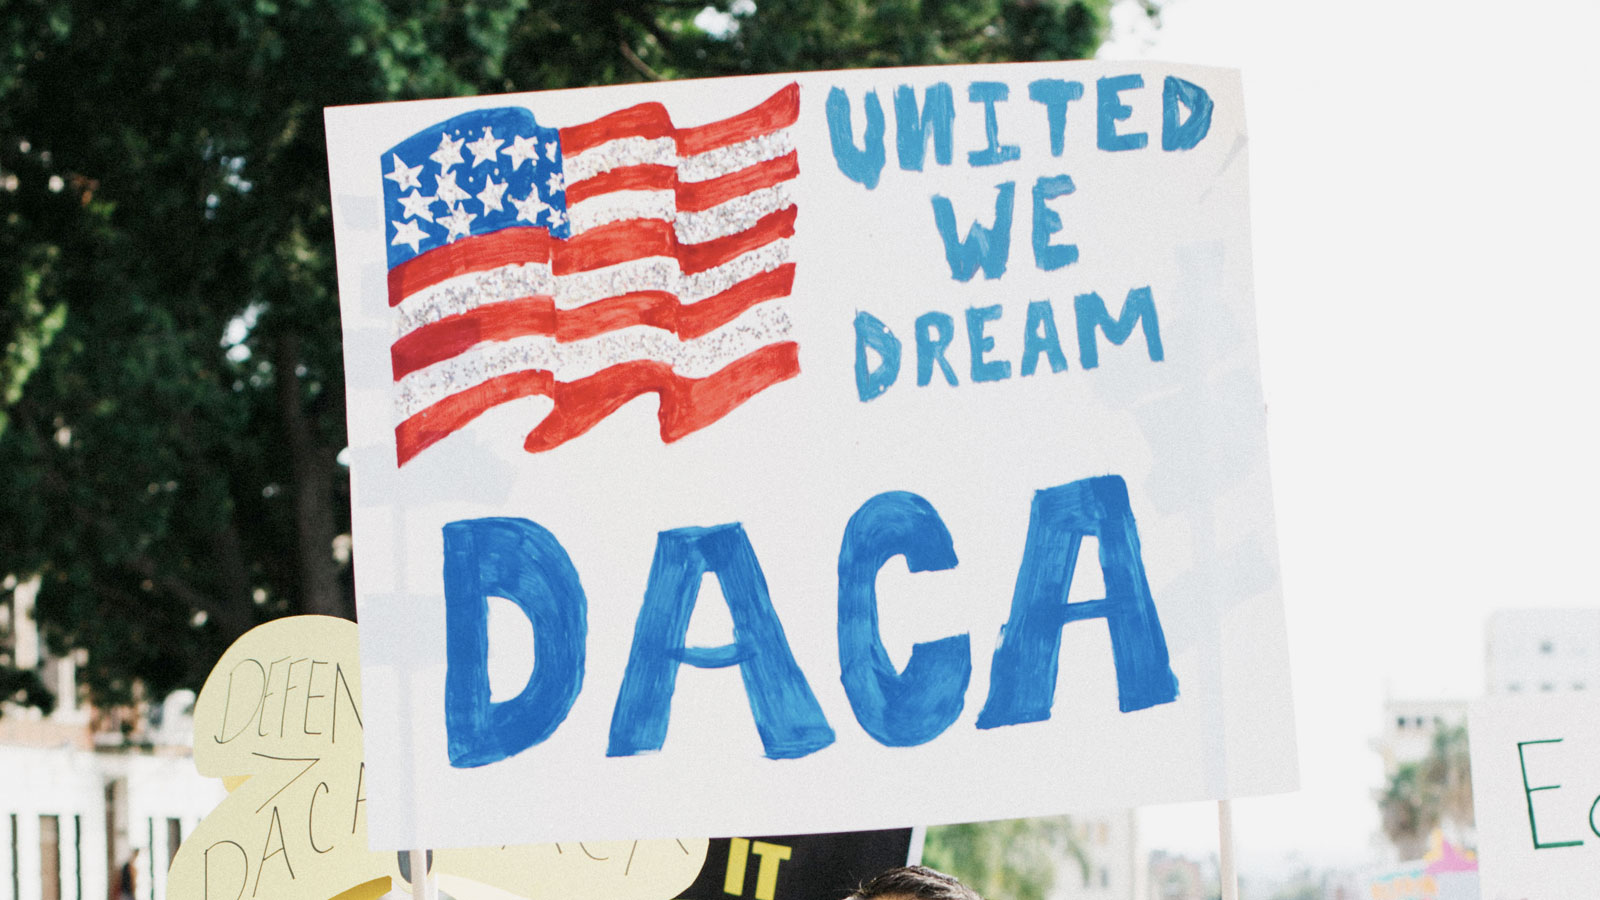 UNITED
WE
DREAM
DACA
DEFEN
DACA
IT
E